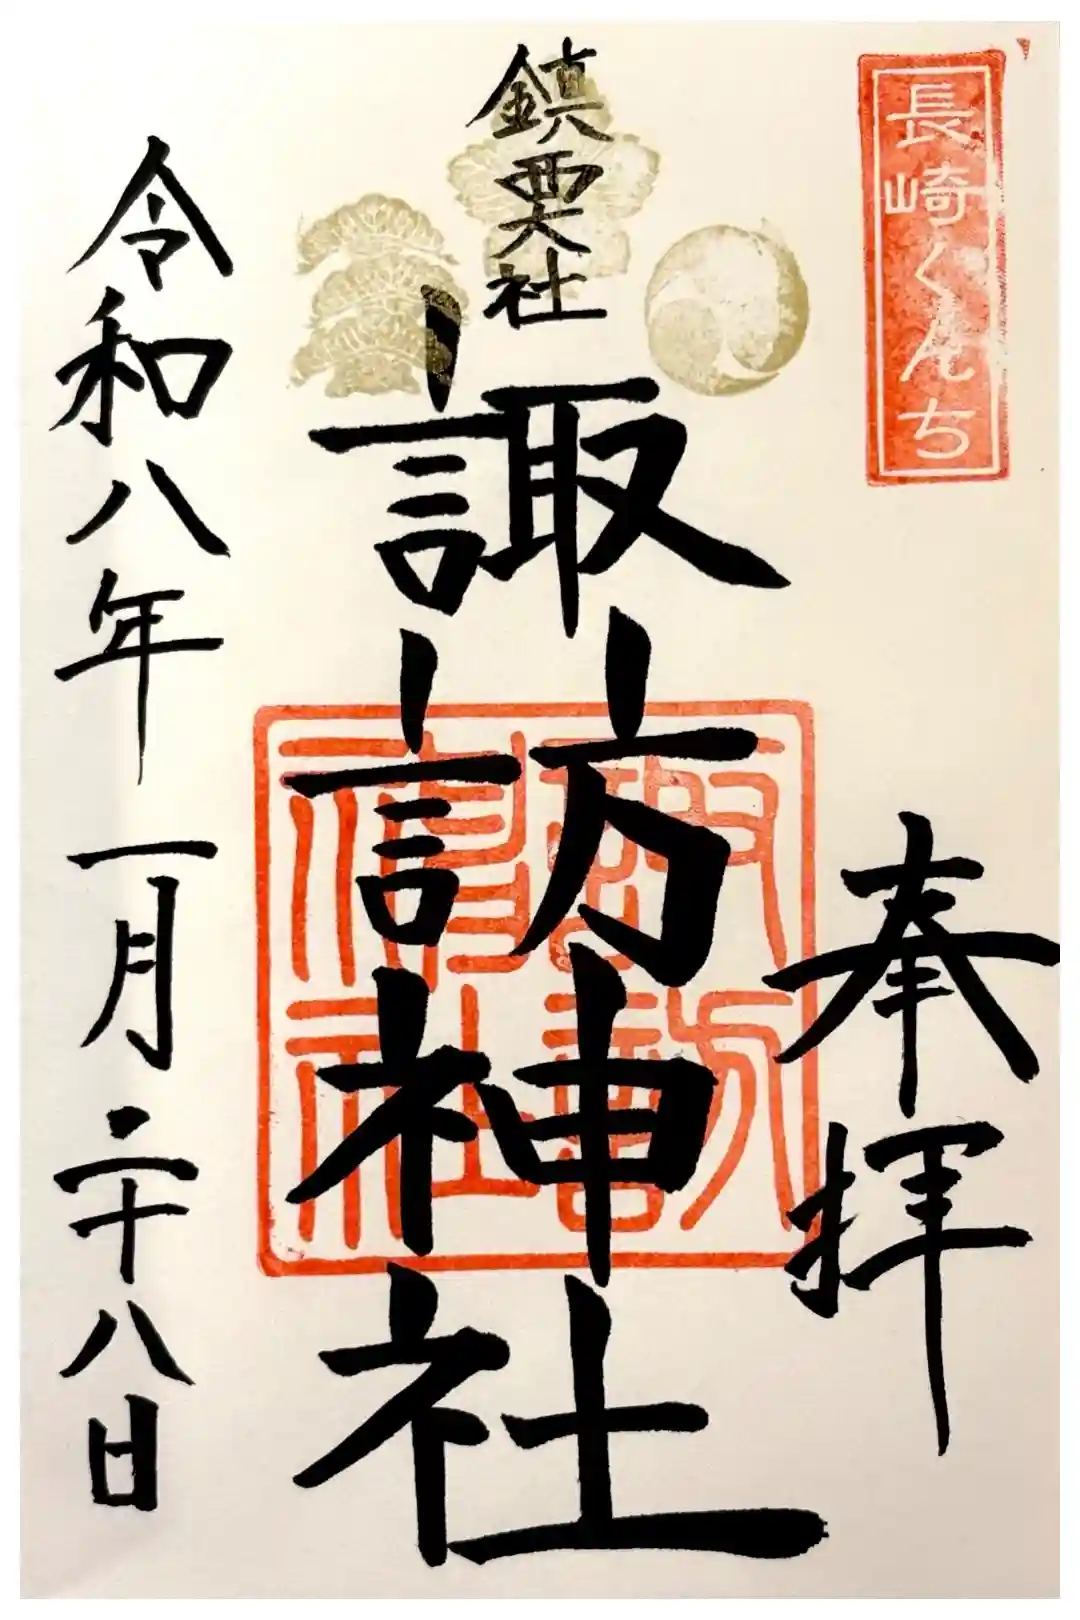 長崎くんち
奉拝
鎮西大社
諏訪神社
令和八年一月二十八日